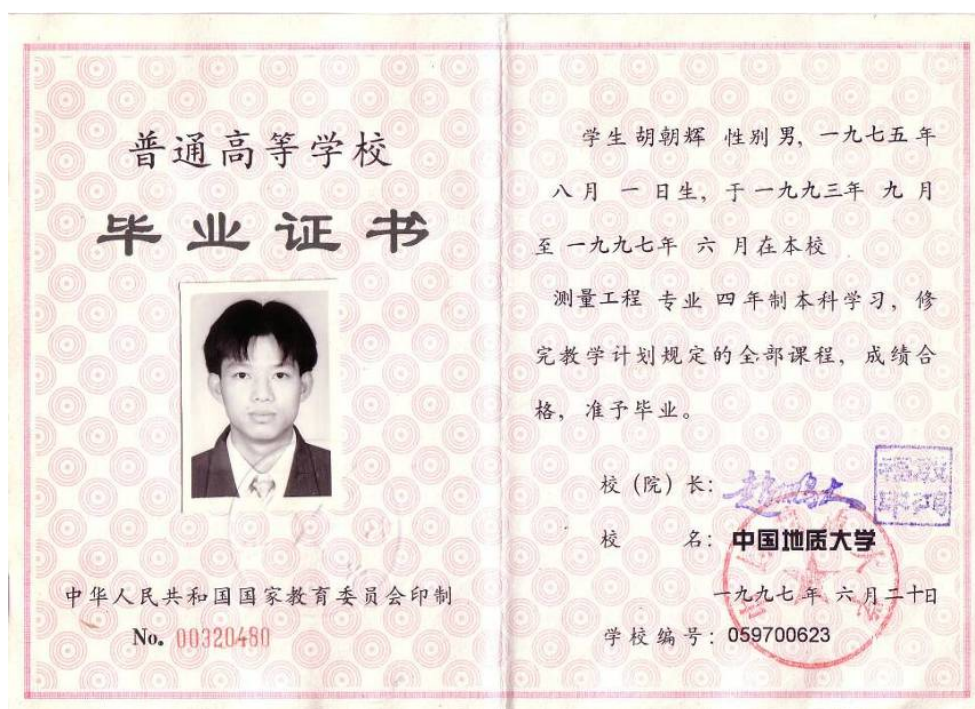 普通高等学校
毕业证书
中华人民共和国国家教育委员会印制
No. 00320480
学生 胡朝辉 性别 男, 一九七五年
八月 一 日生, 于 一九九三年 九 月
至 一九九七年 六 月在本校
测量工程 专业 四 年制本科学习, 修
完教学计划规定的全部课程, 成绩合
格, 准予毕业。
校（院）长: 赵鹏大
校 名: 中国地质大学
一九九七 年 六 月二十日
学校编号: 059700623